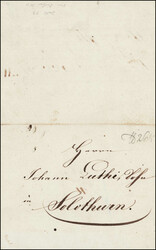 Herrn
Johann Luthi, Sohn
in
Solothurn.